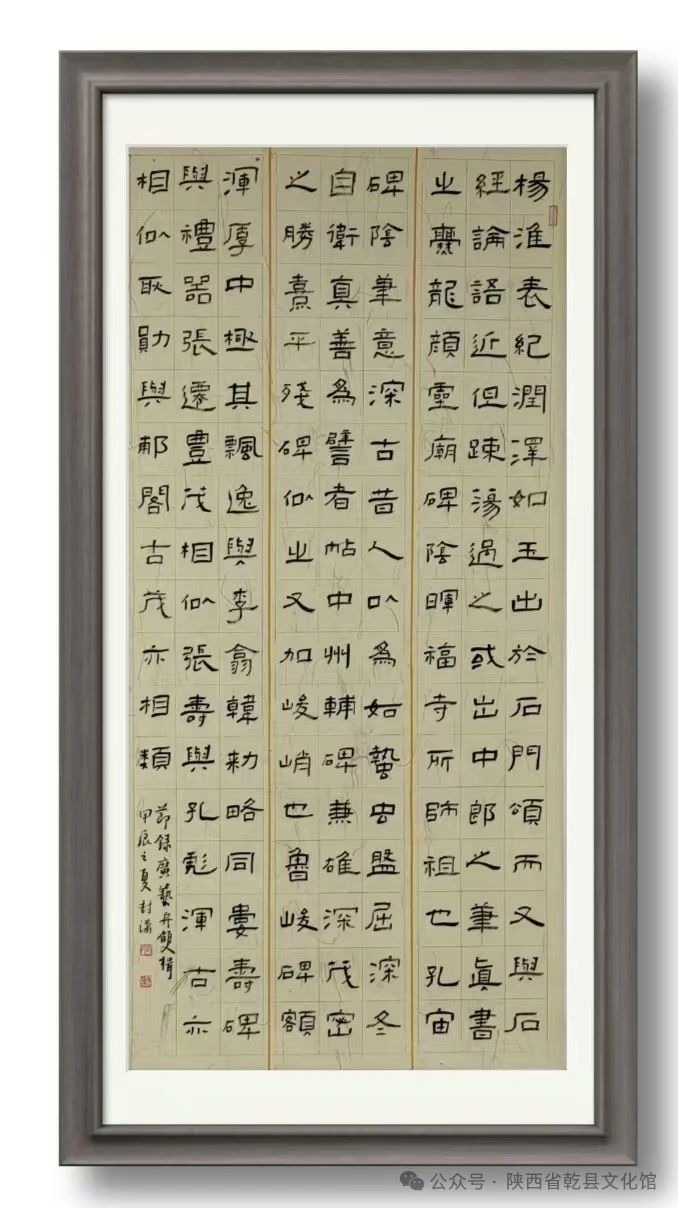 楊淮表紀潤澤如玉出於石門頌而又與石
經論語近但踈蕩過之或出中郎之筆眞書
之爨龍顔靈廟碑陰暉福寺所師祖也孔宙
碑陰筆意深古昔人以為如蟄虫盤屈深冬
自衛真善為譬者帖中州輔碑兼雄深茂密
之勝熹平殘碑似之又加峻峭也魯峻碑額
渾厚中極其飄逸與李翕韓勑略同婁壽碑
與禮器張遷豐茂相似張壽與孔彪渾古亦
相似耿勛與郙閣古茂亦相類
節錄廣藝舟雙楫
甲辰之夏封瀟
公众号·陕西省乾县文化馆